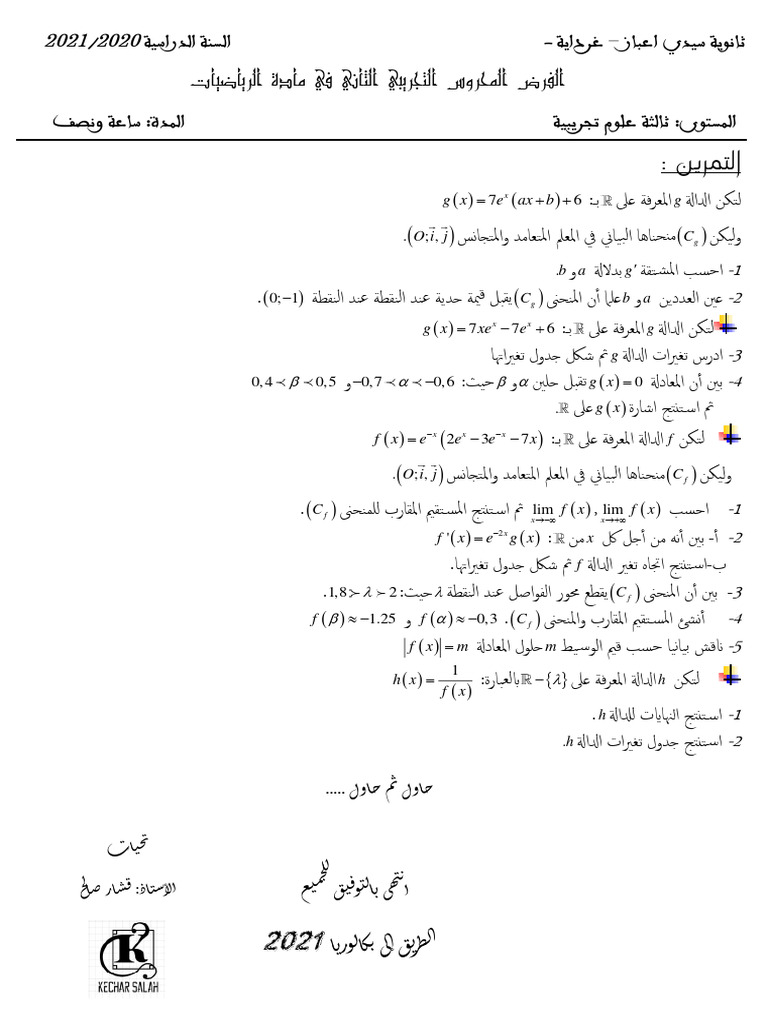 ثانوية سيدي اعباز – غرداية - السنة الدراسية 2021/2020
الفرض المحروس التجريبي الثاني في مادة الرياضيات
المستوى: ثالثة علوم تجريبية المدة: ساعة ونصف
التمرين :
لتكن الدالة g المعرفة على ℝ بـ: g(x) = 7eˣ(ax + b) + 6
وليكن (C_g) منحناها البياني في المعلم المتعامد والمتجانس (O; i⃗, j⃗).
1- احسب المشتقة g' بدلالة a و b.
2- عين العددين a و b علما أن المنحنى (C_g) يقبل قيمة حدية عند النقطة عند النقطة (0;−1).
لتكن الدالة g المعرفة على ℝ بـ: g(x) = 7xeˣ − 7eˣ + 6
3- ادرس تغيرات الدالة g ثم شكل جدول تغيراتها
4- بين أن المعادلة g(x) = 0 تقبل حلين α و β حيث: −0,7 ≺ α ≺ −0,6 و 0,4 ≺ β ≺ 0,5
ثم استنتج اشارة g(x) على ℝ.
لتكن f الدالة المعرفة على ℝ بـ: f(x) = e⁻ˣ(2eˣ − 3e⁻ˣ − 7x)
وليكن (C_f) منحناها البياني في المعلم المتعامد والمتجانس (O; i⃗, j⃗).
1- احسب lim_{x→−∞} f(x) , lim_{x→+∞} f(x) ثم استنتج المستقيم المقارب للمنحنى (C_f).
2- أ- بين أنه من أجل كل x من ℝ : f'(x) = e⁻²ˣg(x)
ب-استنتج اتجاه تغير الدالة f ثم شكل جدول تغيراتها.
3- بين أن المنحنى (C_f) يقطع محور الفواصل عند النقطة λ حيث: 1,8 ≻ λ ≻ 2.
4- أنشئ المستقيم المقارب والمنحنى (C_f). f(α) ≈ −0,3 و f(β) ≈ −1.25
5- ناقش بيانيا حسب قيم الوسيط m حلول المعادلة |f(x)| = m
لتكن h الدالة المعرفة على ℝ − {λ} بالعبارة: h(x) = 1/f(x)
1- استنتج النهايات للدالة h.
2- استنتج جدول تغيرات الدالة h.
حاول ثم حاول .....
تحيات
الأستاذ: قشار صالح
انتهى بالتوفيق للجميع
الطريق الى بكالوريا 2021
KECHAR SALAH